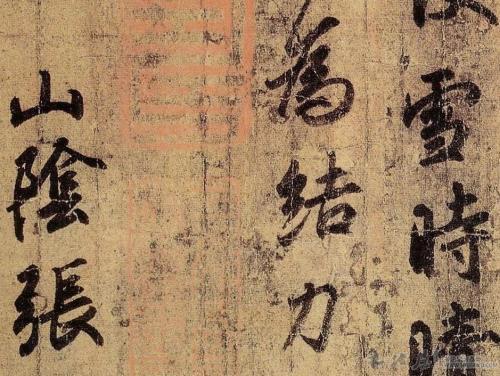 雪時晴
為結力
山陰張